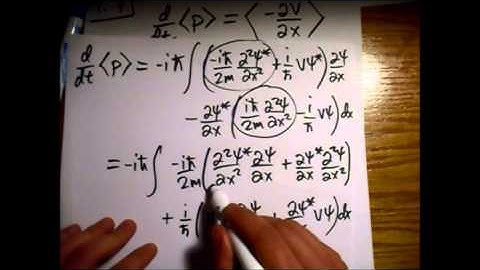 d/dt. <p> = <-∂V/∂x>
d/dt <p> = -iħ ∫ (-iħ/2m ∂²ψ*/∂x² + i/ħ Vψ*) ∂ψ/∂x
- ∂ψ*/∂x (iħ/2m ∂²ψ/∂x² - i/ħ Vψ) dx
= -iħ ∫ -iħ/2m (∂²ψ*/∂x² ∂ψ/∂x + ∂ψ*/∂x ∂²ψ/∂x²)
+ i/ħ ( ∂ψ + ∂ψ* Vψ) dx